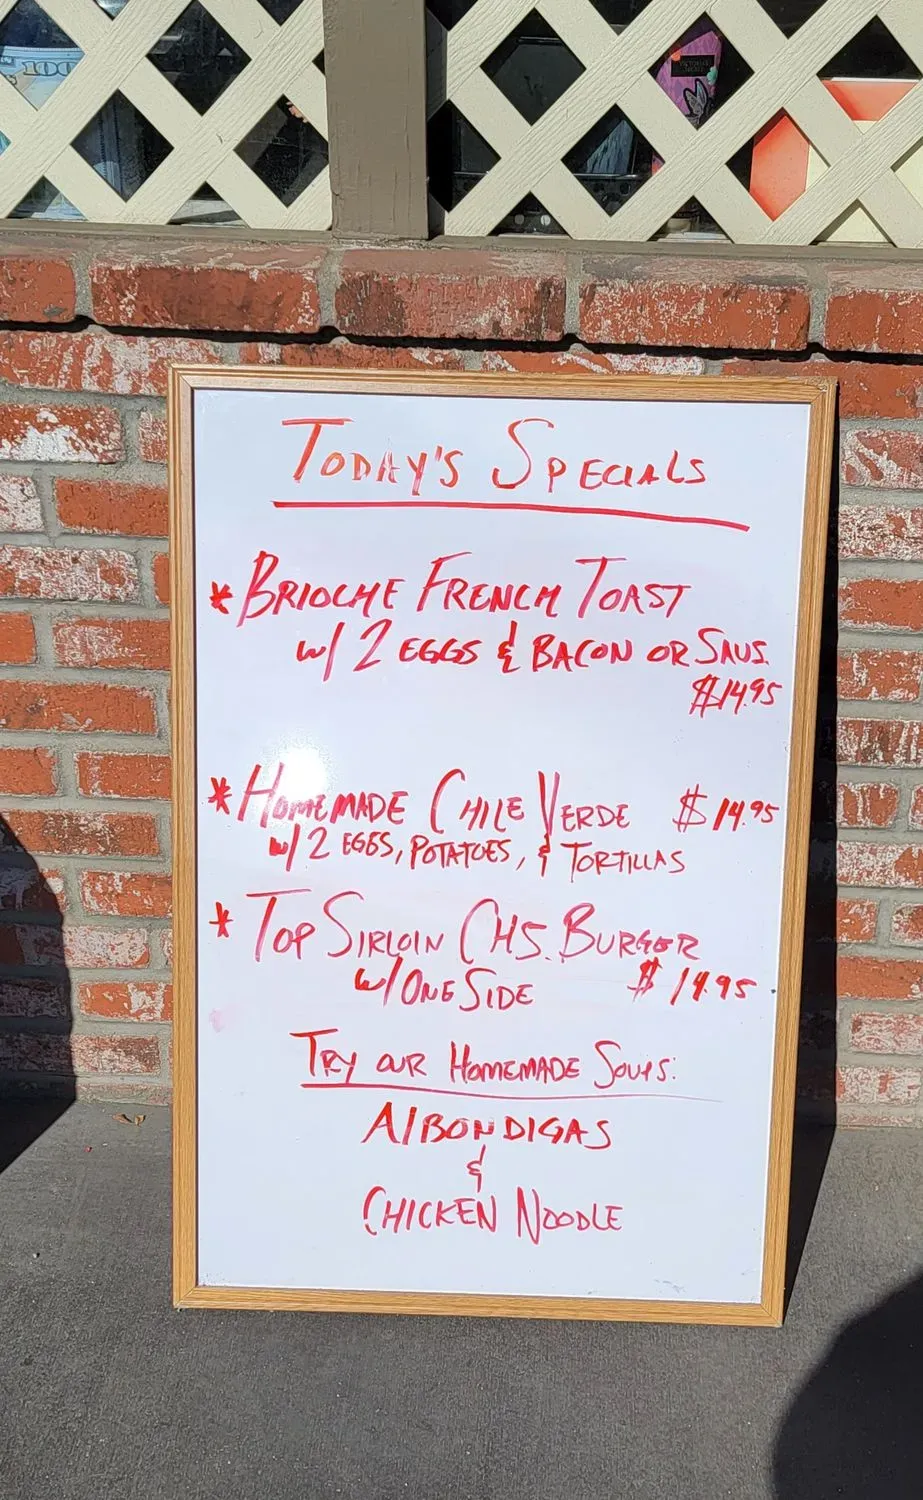 100
VICTORIA'S SECRET
TODAY'S SPECIALS
* BRIOCHE FRENCH TOAST
w/ 2 EGGS & BACON OR SAUS.
$14.95
* HOMEMADE CHILE VERDE $14.95
w/ 2 EGGS, POTATOES, & TORTILLAS
* TOP SIRLOIN CHS. BURGER
w/ ONE SIDE $14.95
TRY OUR HOMEMADE SOUPS:
AlBONDIGAS
&
CHICKEN NOODLE